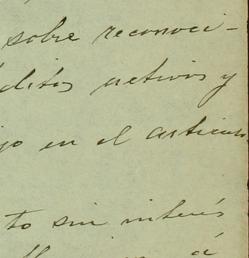 sobre reconoci-
ditos activos y
jo en el articu
to sin interés
á